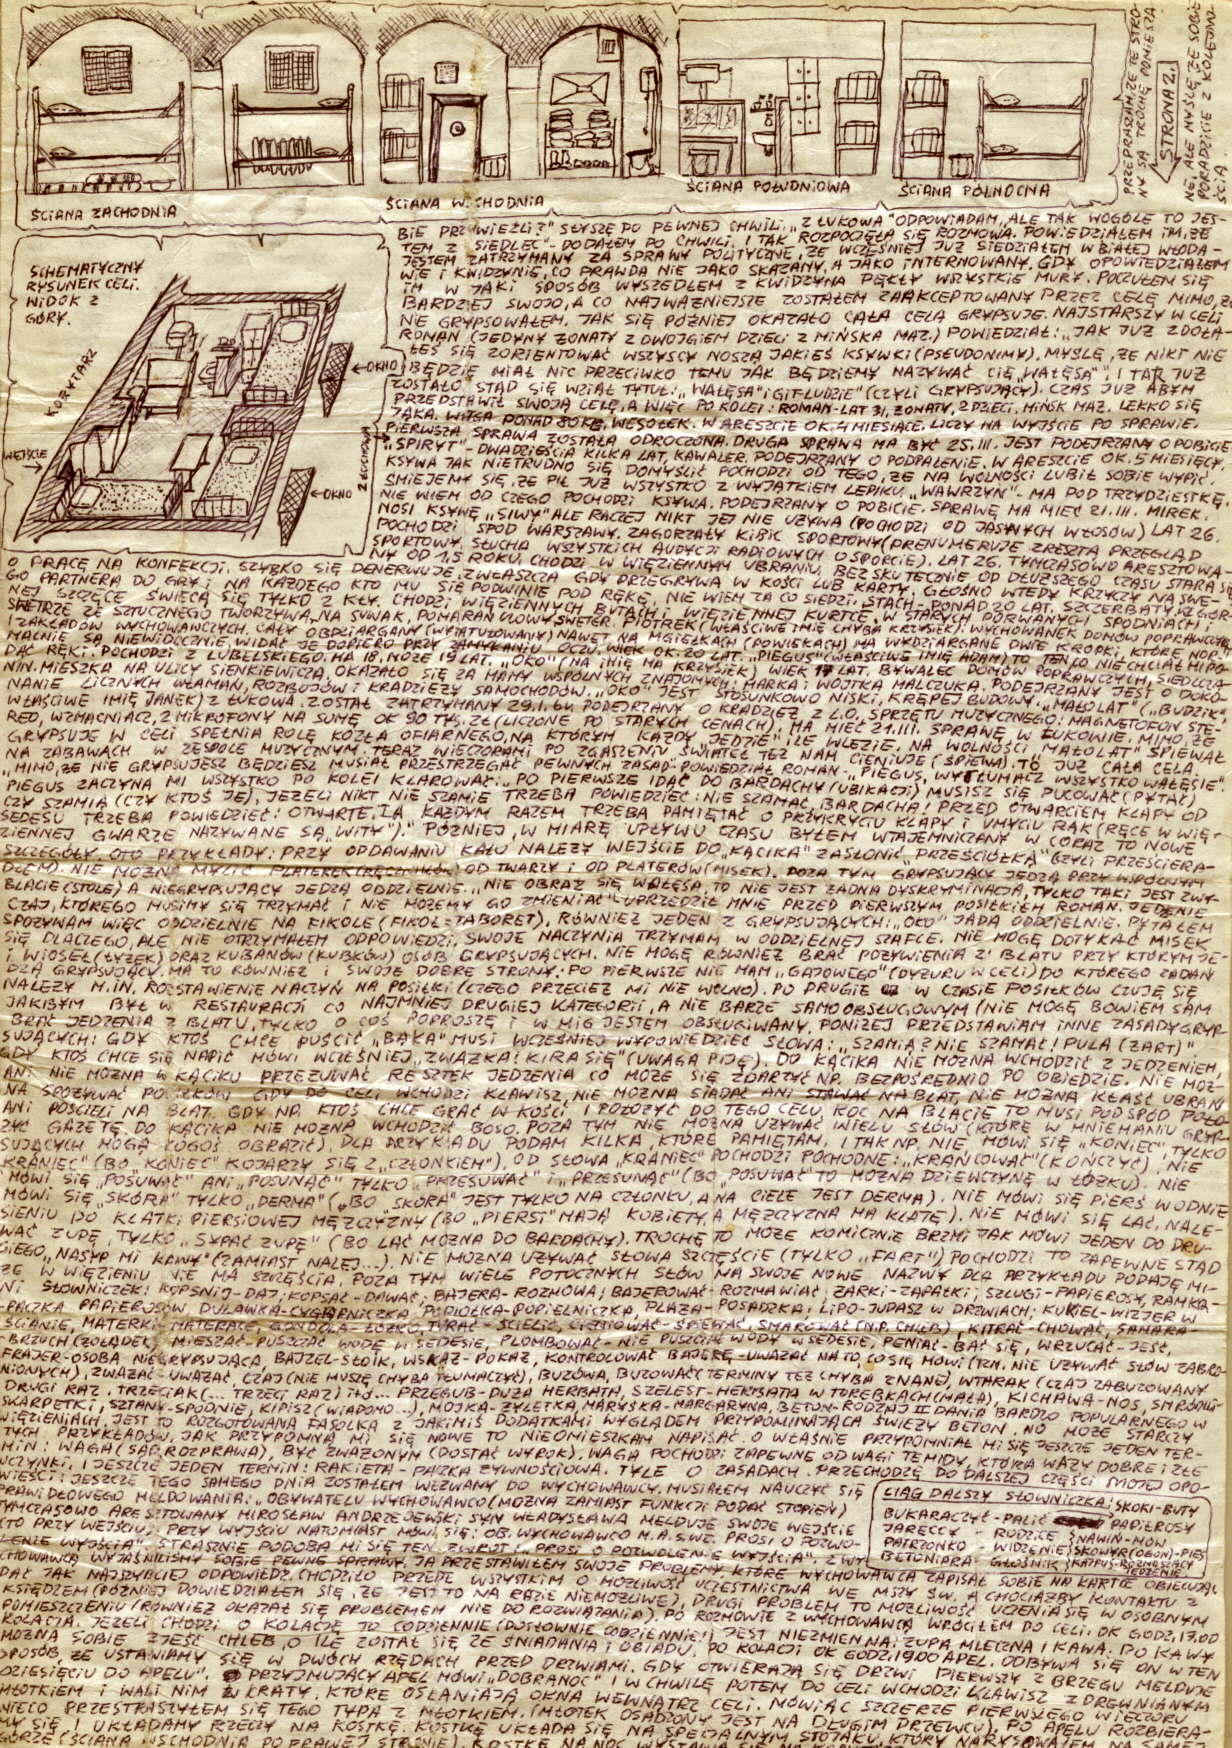 PRZEPRASZAM, ŻE TE STRO-
NY SĄ TROCHĘ POMIESZA-
STRONA 2.
NE, ALE MYŚLĘ, ŻE SOBIE
PORADZICIE Z KOLEJNO-
ŚCIĄ.
ŚCIANA ZACHODNIA
ŚCIANA WSCHODNIA
ŚCIANA POŁUDNIOWA
ŚCIANA PÓŁNOCNA
SCHEMATYCZNY
RYSUNEK CELI.
WIDOK Z
GÓRY.
KORYTARZ
WEJŚCIE
OKNO
OKNO
BIE PRZYWIEŹLI?" SŁYSZĘ PO PEWNEJ CHWILI. „Z ŁUKOWA" ODPOWIADAM, ALE TAK WOGÓLE TO JES-
TEM Z SIEDLEC"- DODAŁEM PO CHWILI. I TAK ROZPOCZĘŁA SIĘ ROZMOWA. POWIEDZIAŁEM IM, ŻE
JESTEM ZATRZYMANY ZA SPRAWY POLITYCZNE, ŻE WCZEŚNIEJ JUŻ SIEDZIAŁEM W BIAŁEJ, WŁODA-
WIE I KWIDZYNIE, CO PRAWDA NIE JAKO SKAZANY, A JAKO INTERNOWANY. GDY OPOWIEDZIAŁEM
IM W JAKI SPOSÓB WYSZEDŁEM Z KWIDZYNA PĘKŁY WSZYSTKIE MURY. POCZUŁEM SIĘ
BARDZIEJ SWOJO, A CO NAJWAŻNIEJSZE ZOSTAŁEM ZAAKCEPTOWANY PRZEZ CELĘ MIMO, ŻE
NIE GRYPSOWAŁEM. JAK SIĘ PÓŹNIEJ OKAZAŁO CAŁA CELA GRYPSUJE. NAJSTARSZY W CELI
ROMAN (JEDYNY ŻONATY Z DWOJGIEM DZIECI Z MIŃSKA MAZ.) POWIEDZIAŁ: „JAK JUŻ ZDOŁA-
ŁEŚ SIĘ ZORIENTOWAĆ WSZYSCY NOSZĄ JAKIEŚ KSYWKI (PSEUDONIMY). MYŚLĘ, ŻE NIKT NIE
BĘDZIE MIAŁ NIC PRZECIWKO TEMU JAK BĘDZIEMY NAZYWAĆ CIĘ „WAŁĘSA". I TAK JUŻ
ZOSTAŁO. STĄD SIĘ WZIĄŁ TYTUŁ: „WAŁĘSA" I GIT-LUDZIE" (CZYLI GRYPSUJĄCY). CZAS JUŻ ABYM
PRZEDSTAWIŁ SWOJĄ CELĘ, A WIĘC PO KOLEI: ROMAN- LAT 31, ŻONATY, 2 DZIECI, MIŃSK MAZ. LEKKO SIĘ
JĄKA. WESOŁEK. W ARESZCIE OK. 4 MIESIĄCE. LICZY NA WYJŚCIE PO SPRAWIE.
PIERWSZA SPRAWA ZOSTAŁA ODROCZONA. DRUGA SPRAWA MA BYĆ 25.III. JEST PODEJRZANY O POBICIE
„SPIRYT"- DWADZIEŚCIA KILKA LAT, KAWALER. PODEJRZANY O PODPALENIE. W ARESZCIE OK. 5 MIESIĘCY.
KSYWA JAK NIETRUDNO SIĘ DOMYŚLIĆ POCHODZI OD TEGO, ŻE NA WOLNOŚCI LUBIŁ SOBIE WYPIĆ.
ŚMIEJEMY SIĘ, ŻE PIŁ JUŻ WSZYSTKO Z WYJĄTKIEM LEPIKU. „WAWRZYN"- MA POD TRZYDZIESTKĘ.
NIE WIEM OD CZEGO POCHODZI KSYWA. PODEJRZANY O POBICIE. SPRAWĘ MA MIEĆ 21.III. MIREK.
NOSI KSYWĘ „SIWY" ALE RACZEJ NIKT JEJ NIE UŻYWA (POCHODZI OD JASNYCH WŁOSÓW) LAT 26.
POCHODZI SPOD WARSZAWY. ZAGORZAŁY KIBIC SPORTOWY (PRENUMERUJE ZRESZTĄ PRZEGLĄD
SPORTOWY, SŁUCHA WSZYSTKICH AUDYCJI RADIOWYCH O SPORCIE). LAT 26. TYMCZASOWO ARESZTOWA-
NY OD 1,5 ROKU, CHODZI W WIĘZIENNYM UBRANIU, BEZSKUTECZNIE OD DŁUŻSZEGO CZASU STARA SIĘ
O PRACĘ NA KONFEKCJI. SZYBKO SIĘ DENERWUJE, ZWŁASZCZA GDY PRZEGRYWA W KOŚCI LUB KARTY. GŁOŚNO WTEDY KRZYCZY NA SWE-
GO PARTNERA DO GRY I NA KAŻDEGO KTO MU SIĘ PODWINIE POD RĘKĘ. NIE WIEM ZA CO SIEDZI. STACH- PONAD 20 LAT, SZCZERBATY, W GÓR-
NEJ SZCZĘCE ŚWIECĄ SIĘ TYLKO 2 KŁY. CHODZI WIĘZIENNYCH BUTACH I WIĘZIENNEJ KURTCE, W STARYCH PORWANYCH SPODNIACH I
SWETRZE ZE SZTUCZNEGO TWORZYWA, NA SUWAK, POMARAŃCZOWY SWETER. PIOTREK (WŁAŚCIWE IMIĘ CHYBA KRZYSIEK) WYCHOWANEK DOMÓW POPRAWCZYCH
I ZAKŁADÓW WYCHOWAWCZYCH. CAŁY OBDZIARGANY (WYTATUOWANY) NAWET NA MGIEŁKACH (POWIEKACH) MA WYDZIARGANE DWIE KROPKI, KTÓRE NOR-
MALNIE SĄ NIEWIDOCZNE. WIDAĆ JE DOPIERO PRZY ZAMYKANIU OCZU. WIEK OK. 20 LAT. „PIEGUS" (WŁAŚCIWE IMIĘ ADAM) TO TEN CO NIE CHCIAŁ MI PO-
DAĆ RĘKI. POCHODZI Z LUBELSKIEGO. MA 18, MOŻE 19 LAT. „OKO" (NA IMIĘ MA KRZYSIEK) WIEK LAT. BYWALEC DOMÓW POPRAWCZYCH, SIEDLCZA-
NIN. MIESZKA NA ULICY SIENKIEWICZA. OKAZAŁO SIĘ ŻE MAMY WSPÓLNYCH ZNAJOMYCH: MARKA I WOJTKA MALCZUKA. PODEJRZANY JEST O DOKO-
NANIE LICZNYCH WŁAMAŃ, ROZBOJÓW I KRADZIEŻY SAMOCHODÓW. „OKO" JEST STOSUNKOWO NISKI, KRĘPEJ BUDOWY. „MAŁOLAT" („BUDZIK"
WŁAŚCIWE IMIĘ JANEK) Z ŁUKOWA. ZOSTAŁ ZATRZYMANY 29.1.84. PODEJRZANY O KRADZIEŻ Z L.O. SPRZĘTU MUZYCZNEGO: MAGNETOFON STE-
REO, WZMACNIACZ, 2 MIKROFONY NA SUMĘ OK 90 TYS. ZŁ (LICZONE PO STARYCH CENACH) MA MIEĆ 21.III. SPRAWĘ W ŁUKOWIE. MIMO, ŻE
GRYPSUJE W CELI SPEŁNIA ROLĘ KOZŁA OFIARNEGO, NA KTÓRYM KAŻDY „JEDZIE" ILE WLEZIE. NA WOLNOŚCI „MAŁOLAT" ŚPIEWAŁ
NA ZABAWACH W ZESPOLE MUZYCZNYM. TERAZ WIECZORAMI PO ZGASZENIU ŚWIATEŁ TEŻ NAM CIENIUJE (ŚPIEWA). TO JUŻ CAŁA CELA.
„MIMO, ŻE NIE GRYPSUJESZ BĘDZIESZ MUSIAŁ PRZESTRZEGAĆ PEWNYCH ZASAD"- POWIEDZIAŁ ROMAN- „PIEGUS, WYTŁUMACZ WSZYSTKO WAŁĘSIE".
PIEGUS ZACZYNA MI WSZYSTKO PO KOLEI KLAROWAĆ: „PO PIERWSZE IDĄC DO BARDACHY (UBIKACJI) MUSISZ SIĘ PUCOWAĆ (PYTAĆ)
CZY SZAMIĄ (CZY KTOŚ JE), JEŻELI NIKT NIE SZAMIE TRZEBA POWIEDZIEĆ: NIE SZAMAĆ, BARDACHA! PRZED OTWARCIEM KLAPY OD
SEDESU TRZEBA POWIEDZIEĆ: OTWARTE. ZA KAŻDYM RAZEM TRZEBA PAMIĘTAĆ O PRZYKRYCIU KLAPY I UMYCIU RĄK (RĘCE W WIĘ-
ZIENNEJ GWARZE NAZYWANE SĄ „WITY")." PÓŹNIEJ, W MIARĘ UPŁYWU CZASU BYŁEM WTAJEMNICZANY W CORAZ TO NOWE
SZCZEGÓŁY. OTO PRZYKŁADY: PRZY ODDAWANIU KAŁU NALEŻY WEJŚCIE DO „KĄCIKA" ZASŁONIĆ „PRZEŚCIÓŁKĄ" (CZYLI PRZEŚCIERA-
DŁEM). NIE MOŻNA MYLIĆ PLATEREK (RĘCZNIKÓW) OD TWARZY I OD PLATERÓW (MISEK). POZA TYM GRYPSUJĄCY JEDZĄ PRZY WSPÓLNYM
BLACIE (STOLE) A NIEGRYPSUJĄCY JEDZĄ ODDZIELNIE. „NIE OBRAŹ SIĘ WAŁĘSA, TO NIE JEST ŻADNA DYSKRYMINACJA, TYLKO TAKI JEST ZWY-
CZAJ, KTÓREGO MUSIMY SIĘ TRZYMAĆ I NIE MOŻEMY GO ZMIENIAĆ"- UPRZEDZIŁ MNIE PRZED PIERWSZYM POSIŁKIEM ROMAN. JEDZENIE
SPOŻYWAM WIĘC ODDZIELNIE NA FIKOLE (FIKOŁ=TABORET), RÓWNIEŻ JEDEN Z GRYPSUJĄCYCH: „OKO" JADA ODDZIELNIE. PYTAŁEM
SIĘ DLACZEGO, ALE NIE OTRZYMAŁEM ODPOWIEDZI. SWOJE NACZYNIA TRZYMAM W ODDZIELNEJ SZAFCE. NIE MOGĘ DOTYKAĆ MISEK
I WIOSEŁ (ŁYŻEK) ORAZ KUBANÓW (KUBKÓW) OSÓB GRYPSUJĄCYCH. NIE MOGĘ RÓWNIEŻ BRAĆ POŻYWIENIA Z BLATU PRZY KTÓRYM JE-
DZĄ GRYPSUJĄCY. MA TO RÓWNIEŻ I SWOJE DOBRE STRONY: PO PIERWSZE NIE MAM „GAJOWEGO" (DYŻURU W CELI) DO KTÓREGO ZADAŃ
NALEŻY M.IN. ROZSTAWIENIE NACZYŃ NA POSIŁKI (CZEGO PRZECIEŻ MI NIE WOLNO). PO DRUGIE W CZASIE POSIŁKÓW CZUJĘ SIĘ
JAKBYM BYŁ W RESTAURACJI CO NAJMNIEJ DRUGIEJ KATEGORII, A NIE BARZE SAMOOBSŁUGOWYM (NIE MOGĘ BOWIEM SAM
BRAĆ JEDZENIA Z BLATU, TYLKO O COŚ POPROSZĘ I W MIG JESTEM OBSŁUGIWANY. PONIŻEJ PRZEDSTAWIAM INNE ZASADY GRYP-
SUJĄCYCH: GDY KTOŚ CHCE PUŚCIĆ „BĄKA" MUSI WCZEŚNIEJ WYPOWIEDZIEĆ SŁOWA: „SZAMIĄ? NIE SZAMAĆ! PULA (ŻART)"
GDY KTOŚ CHCE SIĘ NAPIĆ MÓWI WCZEŚNIEJ „ZWAŻKA! KIRA SIĘ" (UWAGA PIJĘ). DO KĄCIKA NIE MOŻNA WCHODZIĆ Z JEDZENIEM,
ANI NIE MOŻNA W KĄCIKU PRZEŻUWAĆ RESZTEK JEDZENIA CO MOŻE SIĘ ZDARZYĆ NP. BEZPOŚREDNIO PO OBIEDZIE. NIE MOŻ-
NA SPOŻYWAĆ POSIŁKÓW GDY DO CELI WCHODZI KLAWISZ, NIE MOŻNA SIADAĆ ANI STAWAĆ NA BLAT, NIE MOŻNA KŁAŚĆ UBRAŃ
ANI POŚCIELI NA BLAT. GDY NP. KTOŚ CHCE GRAĆ W KOŚCI I ROZŁOŻYĆ DO TEGO CELU KOC NA BLACIE TO MUSI POD SPÓD POŁO-
ŻYĆ GAZETĘ. DO KĄCIKA NIE MOŻNA WCHODZIĆ BOSO. POZA TYM NIE MOŻNA UŻYWAĆ WIELU SŁÓW (KTÓRE W MNIEMANIU GRYP-
SUJĄCYCH MOGĄ KOGOŚ OBRAZIĆ). DLA PRZYKŁADU PODAM KILKA, KTÓRE PAMIĘTAM. I TAK NP. NIE MÓWI SIĘ „KONIEC", TYLKO
„KRANIEC" (BO „KONIEC" KOJARZY SIĘ Z „CZŁONKIEM"), OD SŁOWA „KRANIEC" POCHODZI POCHODNE: „KRAŃCOWAĆ" (KOŃCZYĆ), NIE
MÓWI SIĘ „POSUWAĆ" ANI „POSUNĄĆ" TYLKO „PRZESUWAĆ" I „PRZESUNĄĆ" (BO „POSUWAĆ" TO MOŻNA DZIEWCZYNĘ W ŁÓŻKU). NIE
MÓWI SIĘ „SKÓRA" TYLKO „DERMA" („BO „SKÓRA" JEST TYLKO NA CZŁONKU, A NA CIELE JEST DERMA). NIE MÓWI SIĘ PIERŚ W ODNIE-
SIENIU DO KLATKI PIERSIOWEJ MĘŻCZYZNY (BO „PIERSI" MAJĄ KOBIETY, A MĘŻCZYZNA MA KLATĘ). NIE MÓWI SIĘ LAĆ, NALE-
WAĆ ZUPĘ, TYLKO „SYPAĆ ZUPĘ" (BO LAĆ MOŻNA DO BARDACHY). TROCHĘ TO MOŻE KOMICZNIE BRZMI JAK MÓWI JEDEN DO DRU-
GIEGO „NASYP MI KAWY" (ZAMIAST NALEJ...). NIE MOŻNA UŻYWAĆ SŁOWA SZCZĘŚCIE (TYLKO „FART") POCHODZI TO ZAPEWNE STĄD
ŻE W WIĘZIENIU NIE MA SZCZĘŚCIA. POZA TYM WIELE POTOCZNYCH SŁÓW MA SWOJE NOWE NAZWY DLA PRZYKŁADU PODAJĘ MI-
NI SŁOWNICZEK: KOPSNIJ-DAJ; KOPSAĆ-DAWAĆ; BAJERA-ROZMOWA; BAJEROWAĆ-ROZMAWIAĆ; ŻARKI-ZAPAŁKI; SZLUGI-PAPIEROSY, RAMKA-
-PACZKA PAPIEROSÓW, DULAWKA-CYGARNICZKA PODIOŁKA-POPIELNICZKA, PLAŻA-POSADZKA; LIPO-JUDASZ W DRZWIACH; WIZJER W
ŚCIANIE, MATERKI-MATERACE, GONDOLA-ŁÓŻKO, TYRAĆ-ŚCIELIĆ, CIENIOWAĆ-ŚPIEWAĆ, SMAROWAĆ (NP. CHLEB), KITRAĆ-CHOWAĆ, SAHARA-
-BRZUCH (ŻOŁĄDEK) MIESZAĆ-PUSZCZAĆ WODĘ W SEDESIE, PLOMBOWAĆ-NIE PUSZCZAĆ WODY W SEDESIE, PENIAĆ-BAĆ SIĘ, WRZUCAĆ-JEŚĆ,
FRAJER-OSOBA NIEGRYPSUJĄCA, BAJZEL-SŁOIK, WSKAŻ-POKAŻ, KONTROLOWAĆ BAJERĘ-UWAŻAĆ NA TO CO SIĘ MÓWI (TZN. NIE UŻYWAĆ SŁÓW ZABRO-
NIONYCH), ZWAŻAĆ-UWAŻAĆ, CZAJ (NIE MUSZĘ CHYBA TŁUMACZYĆ), BUZOWA, BUZOWAĆ (TERMINY TEŻ CHYBA ZNANE), WTÓRAK (CZAJ ZABUZOWANY
DRUGI RAZ, TRZECIAK (... TRZECI RAZ) ITD... PRZEGUB-DUŻA HERBATA, SZELEST-HERBATA W TOREBKACH (MAŁA), KICHAWA-NOS,
SKARPETKI, SZTANY-SPODNIE, KIPISZ (WIADOMO...), MOJKA-ŻYLETKA, MARYŚKA-MARGARYNA, BETON-RODZAJ II DANIA BARDZO POPULARNEGO W
WIĘZIENIACH, JEST TO ROZGOTOWANA FASOLKA Z JAKIMIŚ DODATKAMI WYGLĄDEM PRZYPOMINAJĄCA ŚWIEŻY BETON. NO MOŻE STARCZY
TYCH PRZYKŁADÓW, JAK PRZYPOMNĄ MI SIĘ NOWE TO NIEOMIESZKAM NAPISAĆ. O WŁAŚNIE PRZYPOMNIAŁ MI SIĘ JESZCZE JEDEN TER-
MIN: WAGA (SĄD, ROZPRAWA), BYĆ ZWAŻONYM (DOSTAĆ WYROK). WAGA POCHODZI ZAPEWNE OD WAGI TEMIDY, KTÓRA WAŻY DOBRE I ZŁE
UCZYNKI, I JESZCZE JEDEN TERMIN: RAKIETA-PACZKA ŻYWNOŚCIOWA. TYLE O ZASADACH. PRZECHODZĘ DO DALSZEJ CZĘŚCI MOJEJ OPO-
WIEŚCI: JESZCZE TEGO SAMEGO DNIA ZOSTAŁEM WEZWANY DO WYCHOWAWCY. MUSIAŁEM NAUCZYĆ SIĘ
PRAWIDŁOWEGO MELDOWANIA: „OBYWATELU WYCHOWAWCO (MOŻNA ZAMIAST FUNKCJI PODAĆ STOPIEŃ)
TYMCZASOWO ARESZTOWANY MIROSŁAW ANDRZEJEWSKI SYN WŁADYSŁAWA MELDUJE SWOJE WEJŚCIE
(TO PRZY WEJŚCIU), PRZY WYJŚCIU NATOMIAST MÓWI SIĘ: OB. WYCHOWAWCO M.A. S.WŁ. PROSI O POZWO-
LENIE WYJŚCIA". STRASZNIE PODOBA MI SIĘ TEN ZWROT: „PROSI O POZWOLENIE WYJŚCIA". Z WY-
CIĄG DALSZY SŁOWNICZKA: SKOKI-BUTY
BUKARACZYĆ-PALIĆ PAPIEROSY
JARECCY - RODZICE NAWIN-MÓW
PATRZONKO - WIDZENIE SKOWYR (OGON)-PIES
BETONIARA- GŁOŚNIK KAIFUS-ROZNOSZĄCY
JEDZENIE
CHOWAWCĄ WYJAŚNILIŚMY SOBIE PEWNE SPRAWY, JA PRZESTAWIŁEM SWOJE PROBLEMY, KTÓRE WYCHOWAWCA ZAPISAŁ SOBIE NA KARTCE OBIECUJĄC
DAĆ JAK NAJSZYBCIEJ ODPOWIEDŹ. CHODZIŁO PRZEDE WSZYSTKIM O MOŻLIWOŚĆ UCZESTNICTWA WE MSZY ŚW. A CHOCIAŻBY KONTAKTU Z
KSIĘDZEM (PÓŹNIEJ DOWIEDZIAŁEM SIĘ, ŻE JEST TO NA RAZIE NIEMOŻLIWE), DRUGI PROBLEM TO MOŻLIWOŚĆ UCZENIA SIĘ W OSOBNYM
POMIESZCZENIU (RÓWNIEŻ OKAZAŁ SIĘ PROBLEMEM NIE DO ROZWIĄZANIA). PO ROZMOWIE Z WYCHOWAWCĄ WRÓCIŁEM DO CELI. OK GODZ. 17.00
KOLACJA. JEŻELI CHODZI O KOLACJĘ TO CODZIENNIE (DOSŁOWNIE CODZIENNIE!) JEST NIEZMIENNA: ZUPA MLECZNA I KAWA. DO KAWY
MOŻNA SOBIE ZJEŚĆ CHLEB, O ILE ZOSTAŁ SIĘ ZE ŚNIADANIA I OBIADU. PO KOLACJI OK GODZ. 19.00 APEL. ODBYWA SIĘ ON W TEN
SPOSÓB, ŻE USTAWIAMY SIĘ W DWÓCH RZĘDACH PRZED DRZWIAMI. GDY OTWIERAJĄ SIĘ DRZWI PIERWSZY Z BRZEGU MELDUJE
DZIESIĘCIU DO APELU". PRZYJMUJĄCY APEL MÓWI „DOBRANOC" I W CHWILĘ POTEM DO CELI WCHODZI KLAWISZ Z DREWNIANYM
MŁOTKIEM I WALI NIM W KRATY, KTÓRE OSŁANIAJĄ OKNA WEWNĄTRZ CELI. MÓWIĄC SZCZERZE PIERWSZEGO WIECZORU
NIECO PRZESTRASZYŁEM SIĘ TEGO TYPA Z MŁOTKIEM. (MŁOTEK OSADZONY JEST NA DŁUGIM DRZEWCU). PO APELU ROZBIERA-
MY SIĘ I UKŁADAMY RZECZY NA KOSTKĘ. KOSTKĘ UKŁADA SIĘ NA SPECJALNYM STOJAKU, KTÓRY NARYSOWAŁEM NA SAMEJ
GÓRZE (ŚCIANA WSCHODNIA PO PRAWEJ STRONIE). KOSTKĘ NA NOC WYSTAWIA SIĘ NA